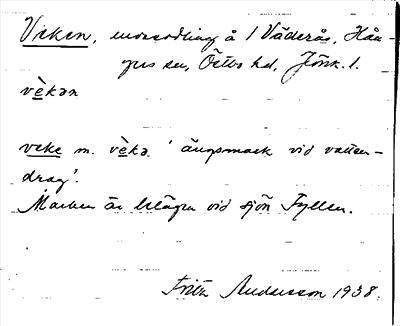 Veken, mossodling å 1 Väderås, Hån-
gers sn, Östbo hd, Jönk. l.
vèkən
veke m. vèkə 'ängsmark vid vatten-
drag'.
Marken är belägen vid sjön Fyllen.
Andersson 1938.